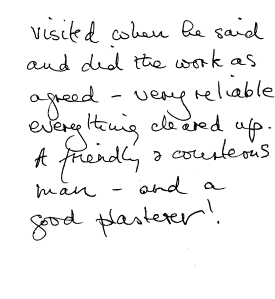 visited when he said
and did the work as
agreed - very reliable
everything cleared up.
A friendly & courteous
man - and a
good plasterer!